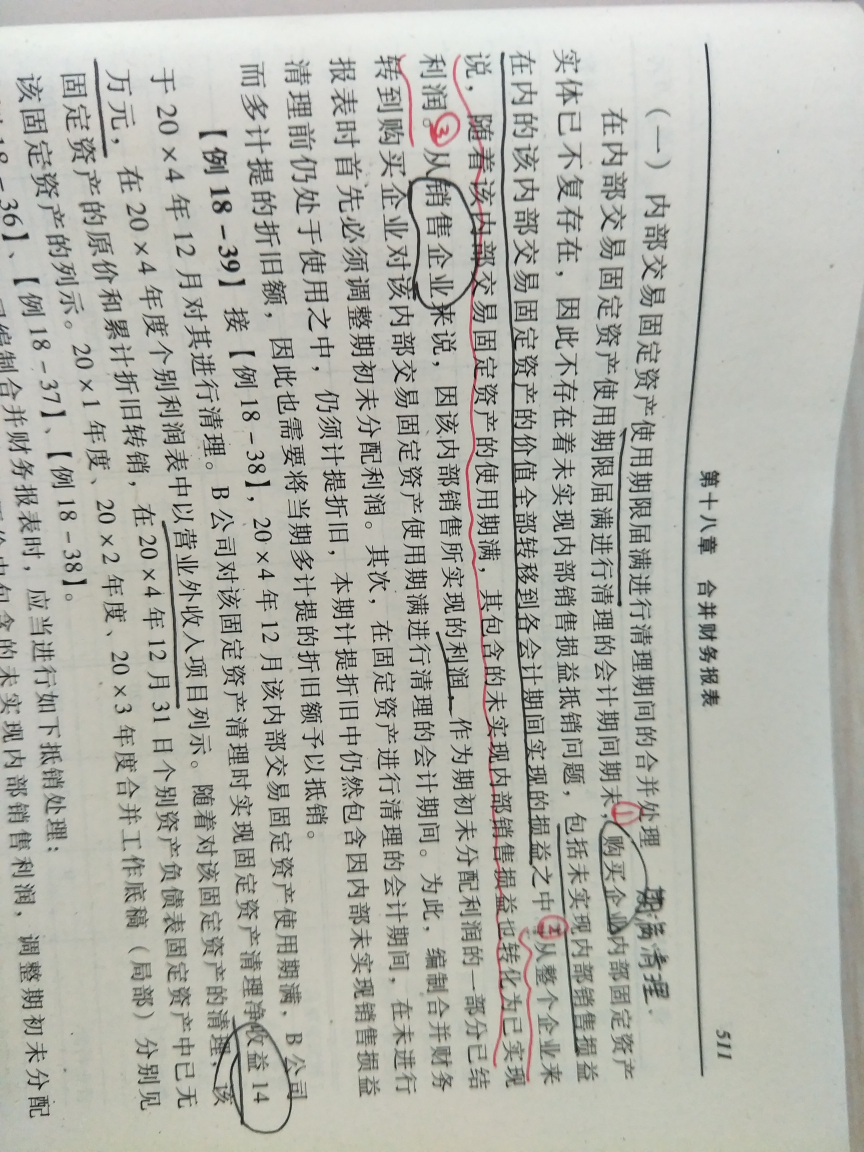 第十八章 合并财务报表 511
(一)内部交易固定资产使用期限届满进行清理期间的合并处理 期满清理、
在内部交易固定资产使用期限届满进行清理的会计期间期末,①购买企业内部固定资产
实体已不复存在,因此不存在着未实现内部销售损益抵销问题,包括未实现内部销售损益
在内的该内部交易固定资产的价值全部转移到各会计期间实现的损益之中。②从整个企业来
说,随着该内部交易固定资产的使用期满,其包含的未实现内部销售损益也转化为已实现
利润。③从销售企业来说,因该内部销售所实现的利润,作为期初未分配利润的一部分已结
转到购买企业对该内部交易固定资产使用期满进行清理的会计期间。为此,编制合并财务
报表时首先必须调整期初未分配利润。其次,在固定资产进行清理的会计期间,在未进行
清理前仍处于使用之中,仍须计提折旧,本期计提折旧中仍然包含因内部未实现销售损益
而多计提的折旧额,因此也需要将当期多计提的折旧额予以抵销。
【例18-39】接【例18-38】,20×4年12月该内部交易固定资产使用期满,B公司
于20×4年12月对其进行清理。B公司对该固定资产清理时实现固定资产清理净收益14
万元,在20×4年度个别利润表中以营业外收入项目列示。随着对该固定资产的清理,该
固定资产的原价和累计折旧转销,在20×4年12月31日个别资产负债表固定资产中已无
该固定资产的列示。20×1年度、20×2年度、20×3年度合并工作底稿(局部)分别见
36】、【例18-37】、【例18-38】。
编制合并财务报表时,应当进行如下抵销处理:
包含的未实现内部销售利润,调整期初未分配